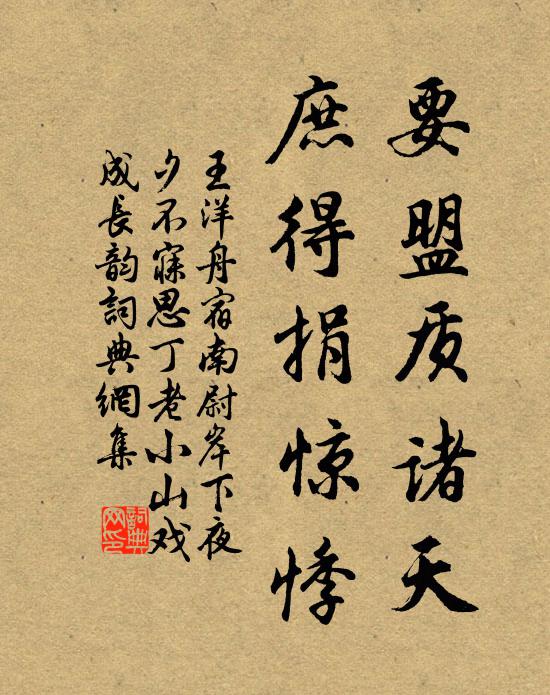 要盟质诸天
庶得捐惊悸
王洋舟宿南尉岸下夜
夕不寐思丁老小山戏
成长韵词典網集
詞典网印